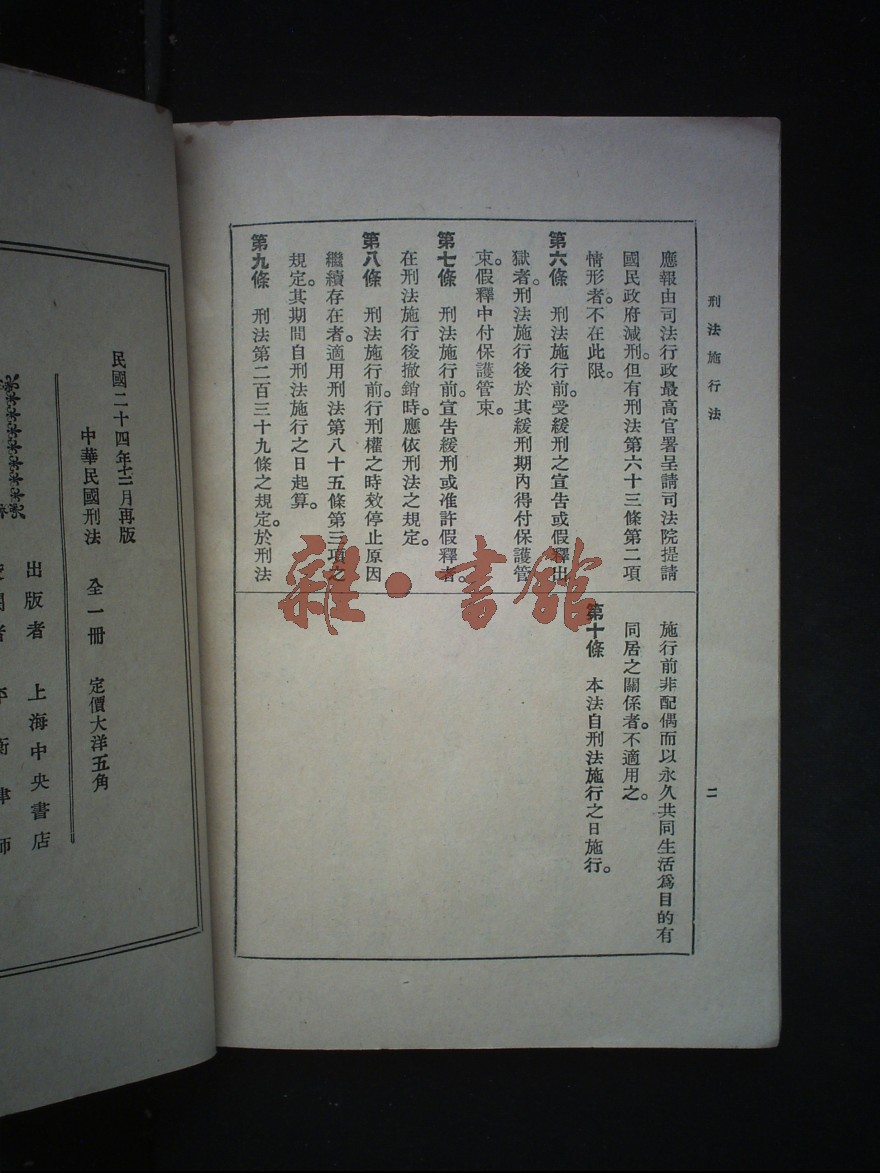 刑法施行法
二
應報由司法行政最高官署呈請司法院提請
國民政府減刑。但有刑法第六十三條第二項
情形者。不在此限。
第六條　刑法施行前。受緩刑之宣告或假釋出
獄者。刑法施行後於其緩刑期內得付保護管
束。假釋中付保護管束。
第七條　刑法施行前。宣告緩刑或准許假釋者。
在刑法施行後撤銷時。應依刑法之規定。
第八條　刑法施行前。行刑權之時效停止原因
繼續存在者。適用刑法第八十五條第三項之
規定。其期間自刑法施行之日起算。
第九條　刑法第二百三十九條之規定。於刑法
施行前非配偶而以永久共同生活爲目的有
同居之關係者。不適用之。
第十條　本法自刑法施行之日施行。
雜·書館
民國二十四年十二月再版
中華民國刑法　全一冊　定價大洋五角
出版者　上海中央書店
者　李　衡　律　師